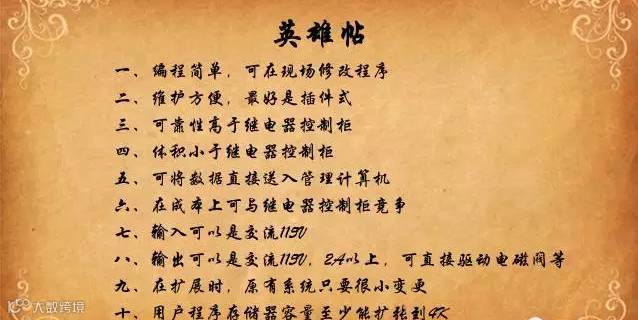 英雄帖
一、编程简单，可在现场修改程序
二、维护方便，最好是插件式
三、可靠性高于继电器控制柜
四、体积小于继电器控制柜
五、可将数据直接送入管理计算机
六、在成本上可与继电器控制柜竞争
七、输入可以是交流115V
八、输出可以是交流115V，2A以上，可直接驱动电磁阀等
九、在扩展时，原有系统只要很小变更
十、用户程序存储器容量至少能扩转到4K
大数跨境